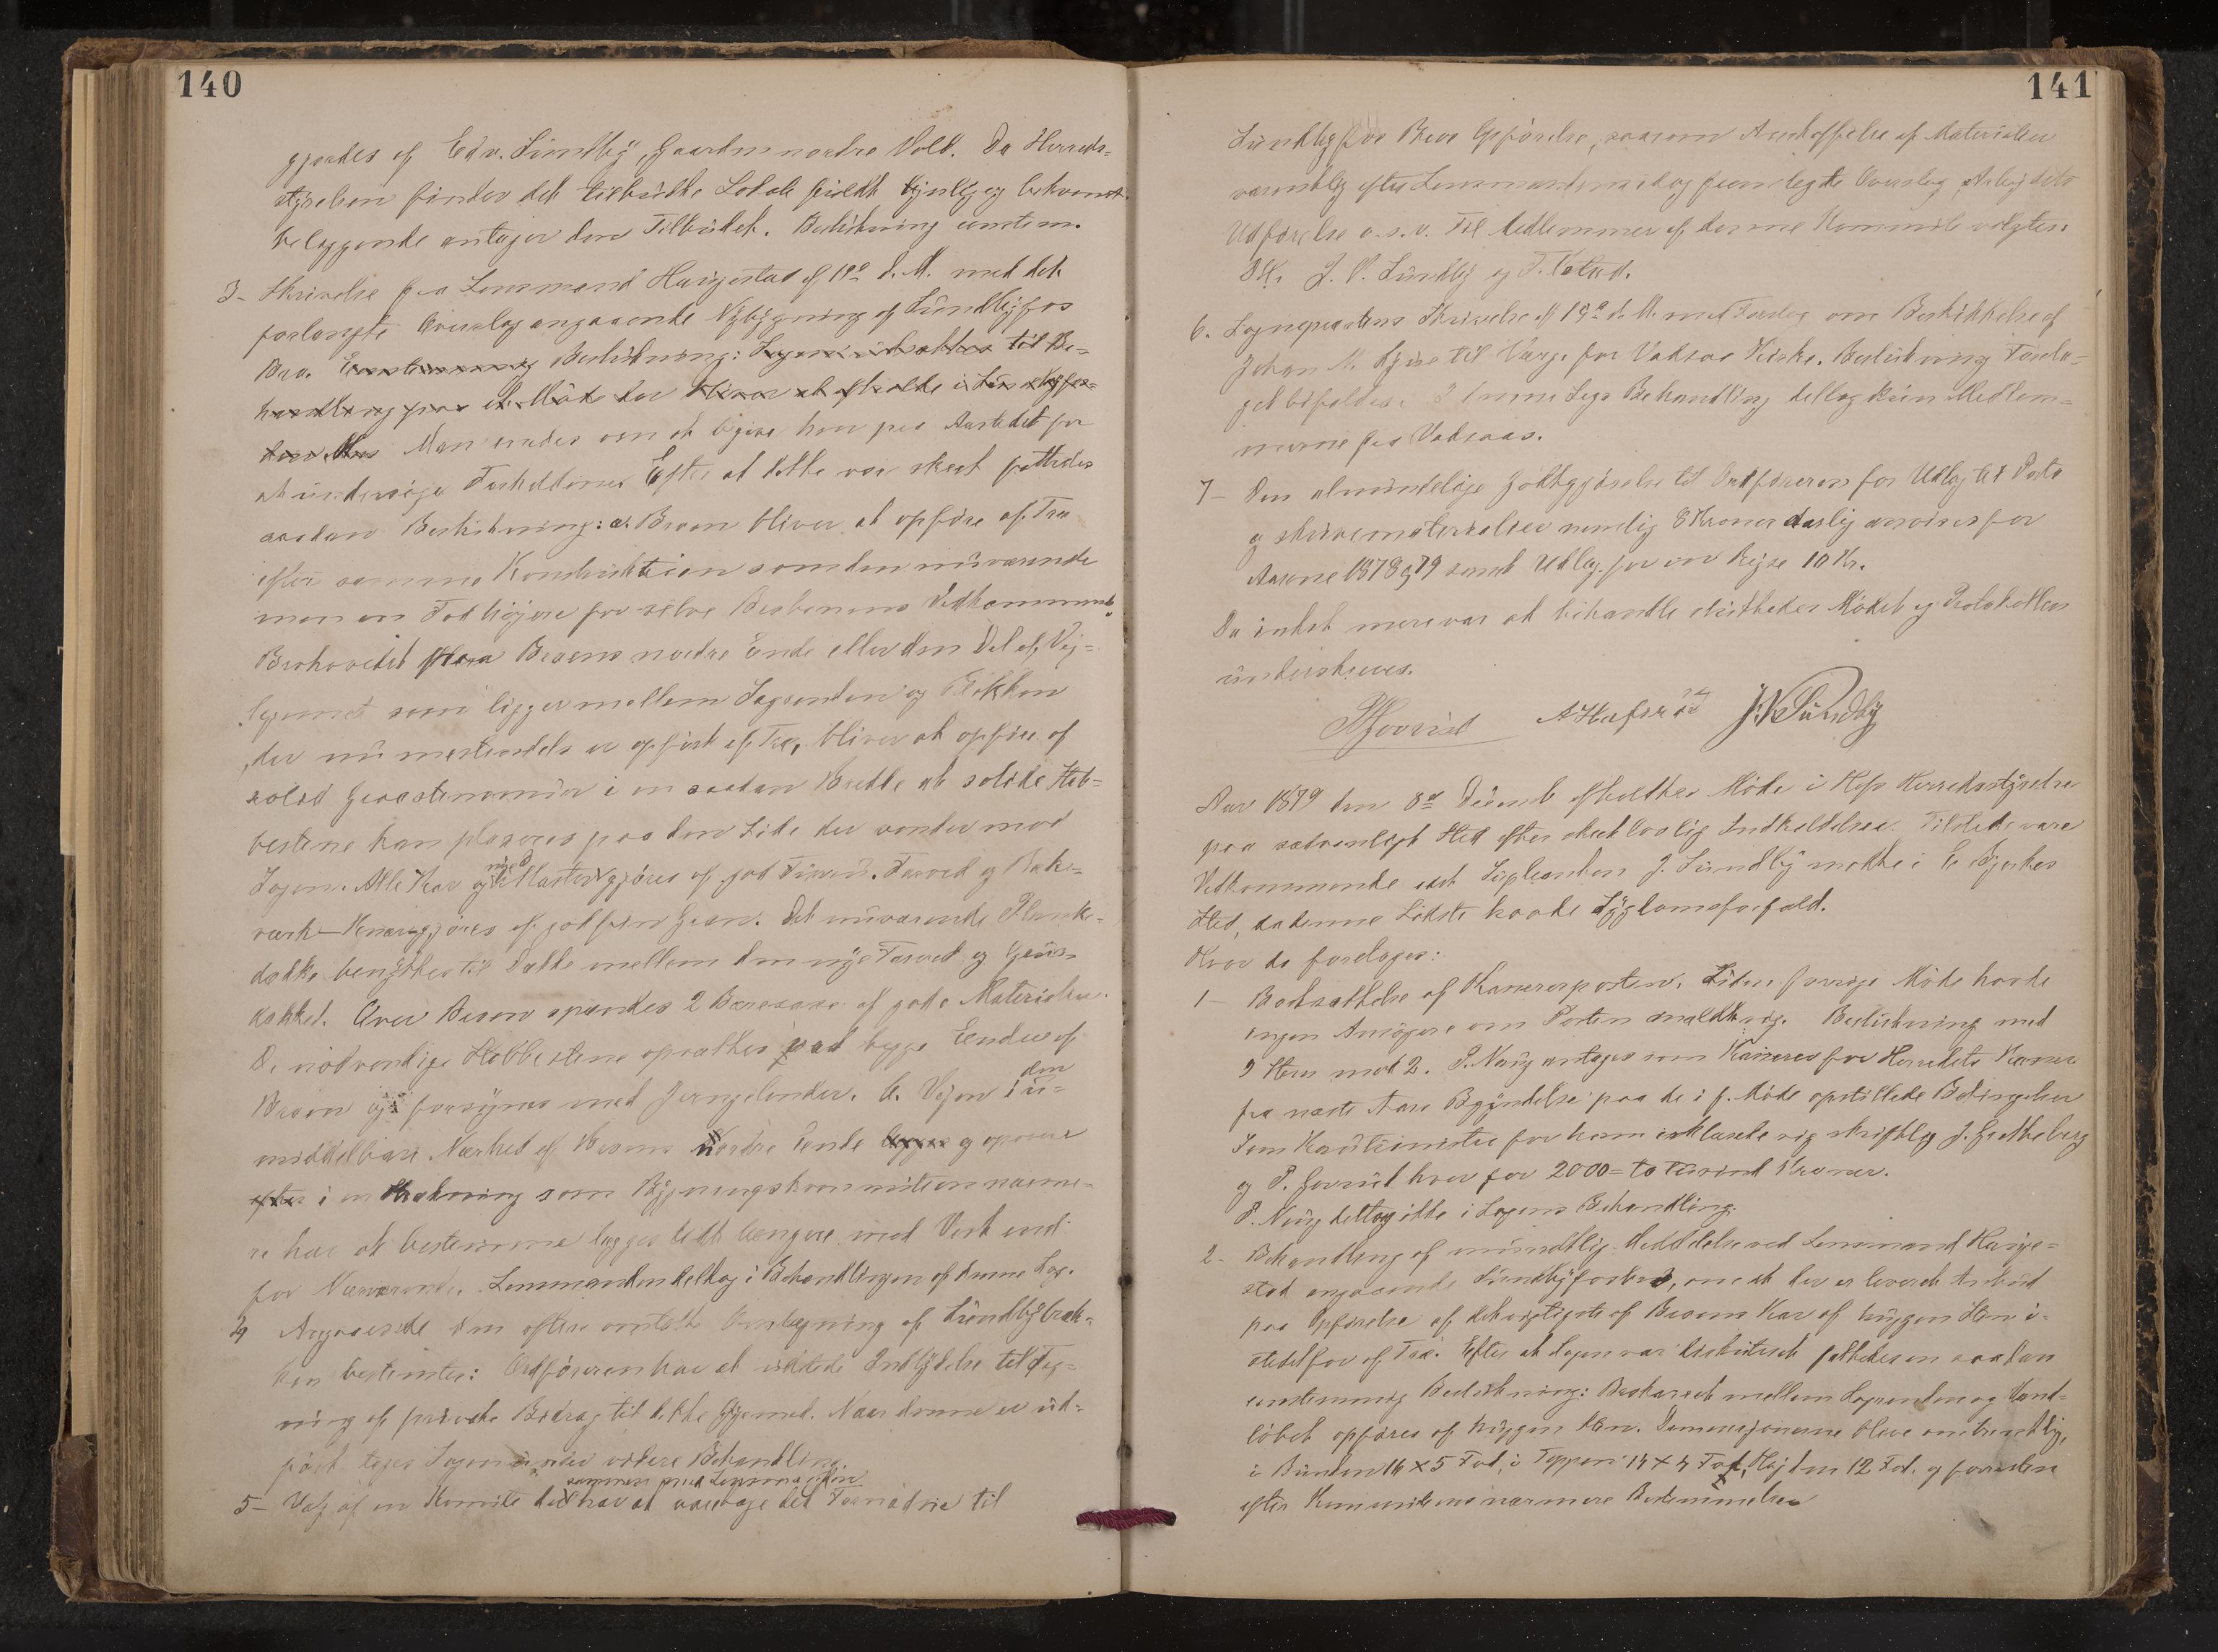 140
gjordes af Edv. Sundby, Gaarden nordre Vold. Da Herreds-
styrelsen finder det tilbudte Lokale fuldt tjenlig og bekvemt
beliggende antager den Tilbudet. Beslutning eenstem.
3- Skrivelse fra Lensmand Haugestad af 19de d. M. med det
forlangte Overslag angaaende Nybygning af Sundbyfos
Bro. Eenstemmig Beslutning: Sagen udsættes til Be-
handling paa et Møde der bliver at afholde i
Man enedes om at begive hen paa Aastedet for
at undersøge Forholdene. Efter at dette var skeet fattedes
saadan Beslutning: a. Broen bliver at opføre af Træ
efter samme Konstruktion som den nuværende
men en Fod højere for selve Brobanens Vedkommende.
Brohovedet fra Broens nordre Ende eller den Del af Vej-
legemet som ligger mellem Sagrenden og Bakken
, der nu mestendels er opført af Træ, bliver at opføre af
solid Graastensmur i en saadan Bredde at solide Stab-
bestene kan plaseres paa den Side der vender mod
Sagen. Alle Kar og med Master gjøres af god Furu. Tarved og Ræk-
værk gjøres af god fin Gran. Det nuværende Planke-
dække benyttes til Dække mellem den nye Tarved og Grus-
dækket. Over Broen spændes 2 Bæresaxe af gode Materialier.
De nødvendige Stabbestene opsættes ved begge Ender af
Broen og forsynes med Jerngelender. b. Vejen i den u-
middelbare Nærhed af Broens Nordre Ende lægges og opover
efter i en Strækning som Bygningskommissionen nærme-
re har at bestemme lægges lidt længere mod Vest end
for Nærværende. Lensmanden deltog i Behandlingen af denne Sag.
4 Angaaende den oftere omtalte Omlægning af Sundbybak-
ken bestemtes: Ordføreren har at udstede Indbydelse til Teg-
ning af private Bidrag til dette Øjemed. Naar denne er ud-
ført tages Sagen under videre Behandling.
sammen med Lensmanden
5- Valg af en Komite der har at varetage det Fornødne til
141
Sundbyfos Bros Opførelse, saasom Anskaffelse af Materialier
væsentlig efter Lensmandens idag fremlagte Overslag, Arbejdets
Udførelse o.s.v. Til Medlemmer af denne Kommite valgtes:
DHr. J. N. Sundby og T. Kolstad.
6. Sognepræstens Skrivelse af 19de d. M. med Forslag om Beskikkelse af
Johan M. Kjøse til Værge for Vaksaas Kirke. Beslutning: Forsla-
get bifaldes. I denne Sags Behandling deltog kun Medlem-
merne fra Vaksaas.
7- Den almindelige Godtgjørelse til Ordføreren for Udlæg til Porto
og skrivematerialier nemlig 8 Kroner aarlig anvises for
Aarene 1878 og 79 samt Udlæg for en Rejse 10 Kr.
Da intet mere var at behandle sluttedes Mødet og Protokollen
underskreves.
PGovrud A Hafsrød JNSundby
Aar 1879 den 8de Decemb afholdtes Møde i Hofs Herredsstyrelse
paa sædvanligt Sted efter skeet lovlig Indkaldelse. Tilstede vare
Vedkommende idet Suplianten J. Sundby mødte i E. Bjerkes
Sted, da denne Sidste havde Sygdomsforfald.
Hvor da foretoges:
1- Besættelse af Kassererposten. Siden forrige Møde havde
ingen Ansøgere om Posten meldt sig. Beslutning med
9 Stem mod 2. P. Naug antages som Kasserer for Herredets Kasser
fra næste Aars Begyndelse paa de i f. Møde opstillede Betingelser
Som Kautionister for ham erklærede sig skriftlig J. Gretteberg
og P. Govrud hver for 2000 = to tusind Kroner.
P. Naug deltog ikke i Sagens Behandling.
2- Behandling af mundtlig Meddelelse ved Lensmand Hauge-
stad angaaende Sundbyfosbro, om at der er leveret Anbud
paa Opførelse af det vigtigste af Broens Kar af huggen Sten i-
stedetfor af Træ. Efter at Sagen var diskuteret fattedes en saadan
eenstemmig Beslutning: Brokarret mellem Sagrenden og Vand-
løbet opføres af huggen Sten. Dimensjonerne bleve omtrentlig,
i Bunden 16 X 5 Fod, i Toppen 14 X 4 Fod, Højden 12 Fod. og forresten
efter Kommiteens nærmere Bestemmelse